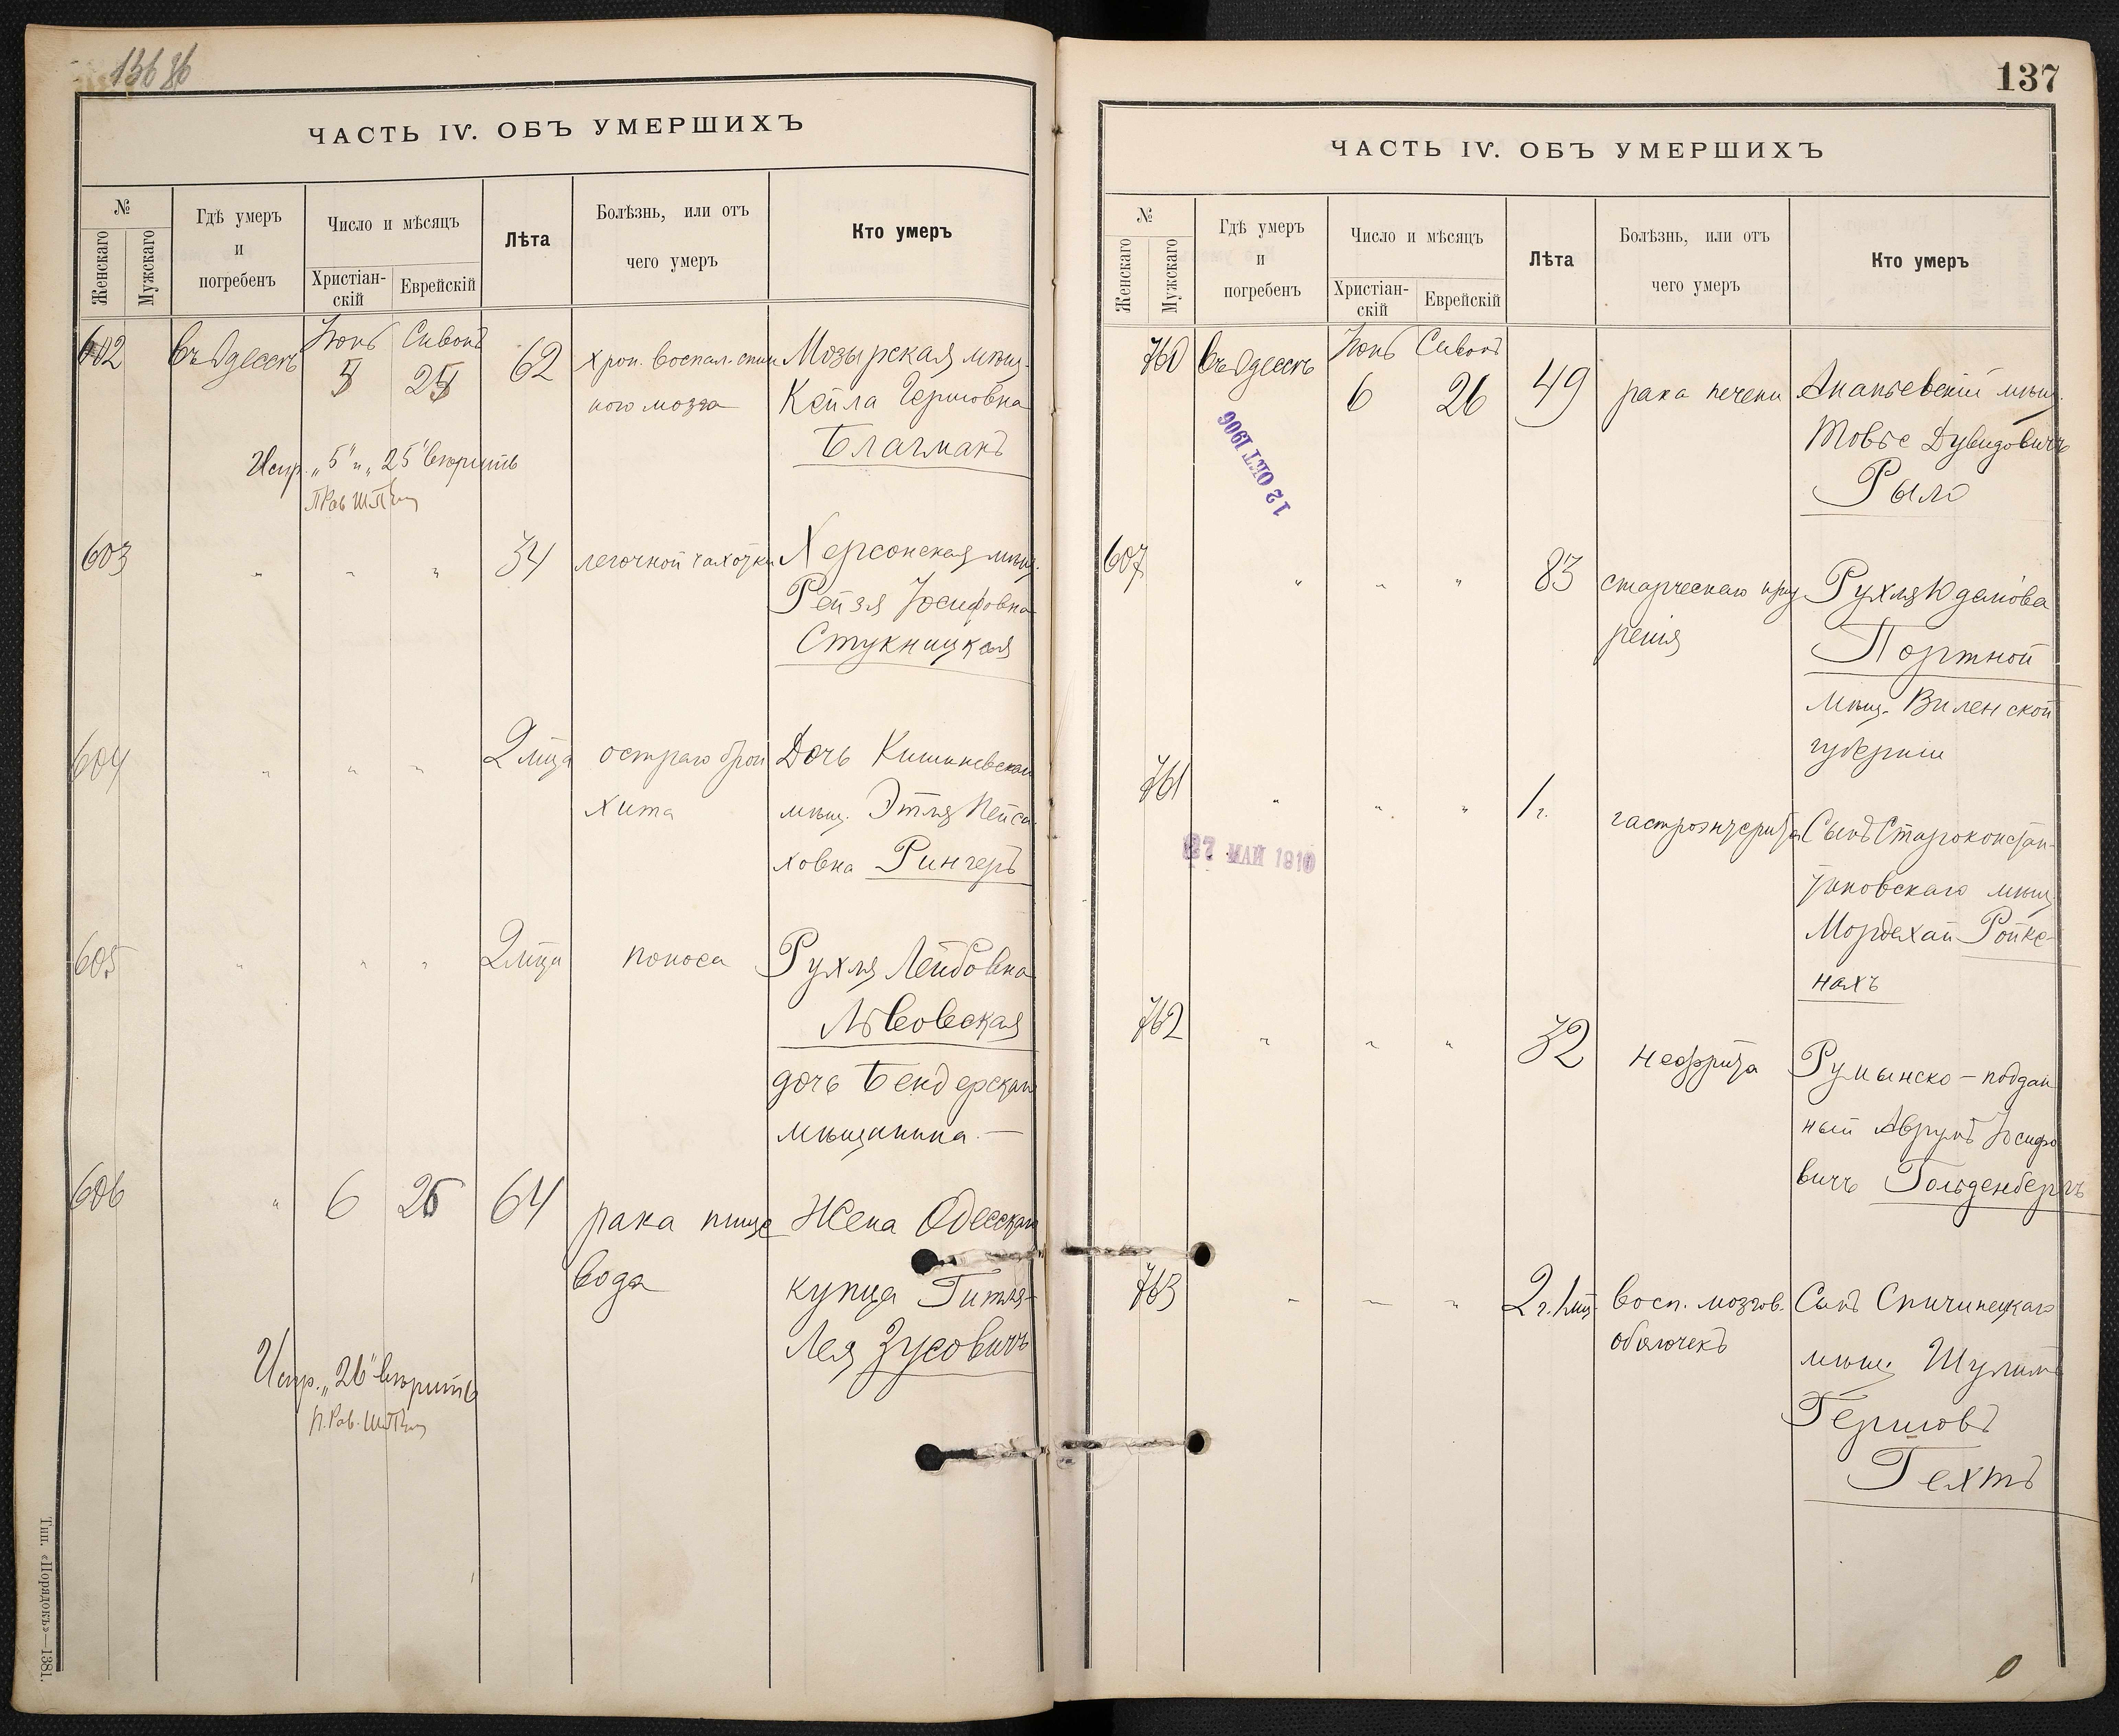 136 86
ЧАСТЬ IV. ОБЪ УМЕРШИХЪ
№
Женскаго
Мужскаго
Гдѣ умеръ
и
погребенъ
Число и мѣсяцъ
Христіан-
скій
Еврейскій
Лѣта
Болѣзнь, или отъ
чего умеръ
Кто умеръ
602 Въ Одессѣ Іюнь Сивонъ 62 хрон. воспал. спин Мозырская мѣщ.
5 25 ного мозга Кейла Гершовна
Благманъ
Испр. „5" и „25" вѣрить
603 " " " 34 легочной чахотки Херсонская мѣщ.
Рейзя Іосифовна
Стукницкая
604 " " " 2 мца остраго брон Дочь Кишиневскаго
хита мѣщ. Этля Пейса
ховна Рингеръ
605 " " " 2 мца поноса Рухля Лейбовна
Львовская
дочь Бендерскаго
мѣщанина.—
606 " 6 26 64 рака пище Жена Одесскаго
вода купца Гитля-
Лея Зусовичъ
Испр. „26" вѣрить
Тип. «Порядокъ»—1381.
137
ЧАСТЬ IV. ОБЪ УМЕРШИХЪ
№
Женскаго
Мужскаго
Гдѣ умеръ
и
погребенъ
Число и мѣсяцъ
Христіан-
скій
Еврейскій
Лѣта
Болѣзнь, или отъ
чего умеръ
Кто умеръ
760 Въ Одессѣ Іюнь Сивонъ
6 26 49 рака печени Ананьевскій мѣщ.
Товье Дувидовичъ
Рыло
12 ОКТ 1906
607 " " " 83 старческаго изну Рухля Юдкова
ренія Портной
мѣщ. Виленской
губерніи
761 " " " 1 г. гастроэнтерита Сынъ Староконстан-
тиновскаго мѣщ
Мордехай Ройке-
нахъ
27 МАЙ 1910
762 " " " 32 нефрита Румынско-поддан
ный Аврумъ Іосифо
вичъ Гольденбергъ
763 " " " 2 г. 1 мц. восп. мозгов. Сынъ Спичинецкаго
оболочекъ мѣщ Шулимъ
Гершовъ
Гехтъ